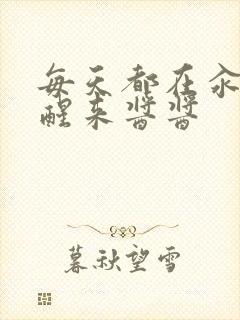 每天都在汆
醒来酱酱
暮秋望雪